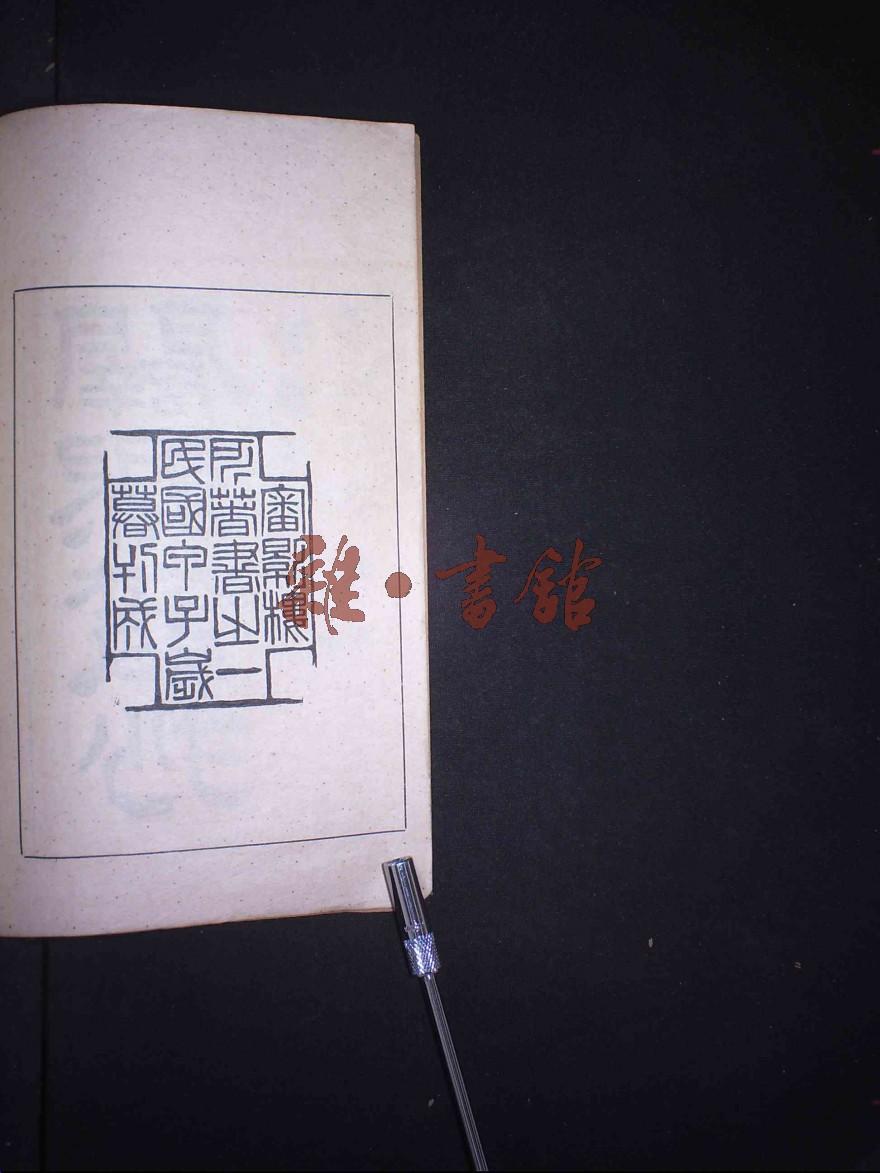 審影樓
所著書之一
民國甲子歲
暮刊成
雜·書館